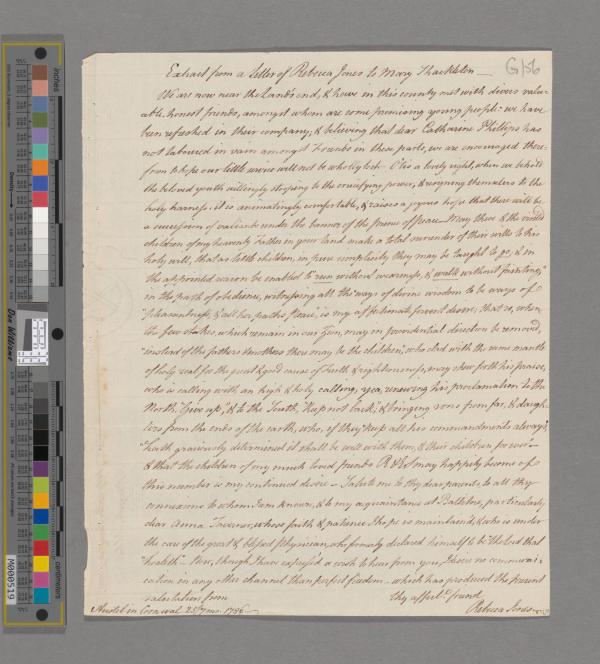 G/56
Extract from a Letter of Rebecca Jones to Mary Shackleton
We are now near the Land's end, & have in this county met with divers valu-
able honest friends, amongst whom are some promising young people: we have
been refreshed in their company, & believing that dear Catharine Phillips has
not laboured in vain amongst Friends in these parts, we are encouraged there-
from to hope our little will not be wholly lost. O tis a lovely sight, when we behold
the beloved youth willingly stooping to the crucifying power, & resigning themselves to the
holy harness: it is animatingly comfortable, & raises a joyous hope that there will be
a succession of valiants under the banner of the prince of peace. May these & the visited
children of my heavenly Father in your land make a total surrender of their wills to his
holy will, that as little children, in pure simplicity they may be taught to go, & in
the appointed season be enabled to run without weariness, & walk without fainting,
in the path of obedience, witnessing all the "ways of divine wisdom to be ways of
"pleasantness, & all her paths peace, is my affectionate fervent desire, that so, when
the few stakes, which remain in our Zion, may in providential direction be removed,
"instead of the fathers & mothers there may be the children", who clad with the same mantle
of holy zeal for the great & good cause of truth & righteousness, may shew forth his praise,
who is calling with an high & holy calling, yea, renewing his proclamation to the
North, "Give up", & to the South, "Keep not back", & bringing sons from far, & daugh-
ters from the ends of the earth, who, if they "keep all his commandments always,"
"hath graciously determined it shall be well with them, & their children forever"
& that the children of my much loved friends R & E S may happily become of
this number is my continued desire. Salute me to thy dear parents, to all thy
connexions to whom I am known, & to my acquaintance at Ballitore, particularly
dear Anna Taverner, whose faith & patience I hope is maintained, & who is under
the care of the great & blessed physician, who formerly declared himself to be "the Lord that
"healeth". Now, though I have express'd a wish to hear from you, I desire no communi-
cation in any other channel than perfect freedom - which has produced the present
salutation from
thy affect. friend
Rebecca Jones
Austel in Cornwal 25/7 mo. 1786
inches
centimetres
Density
Don Williams
M000519